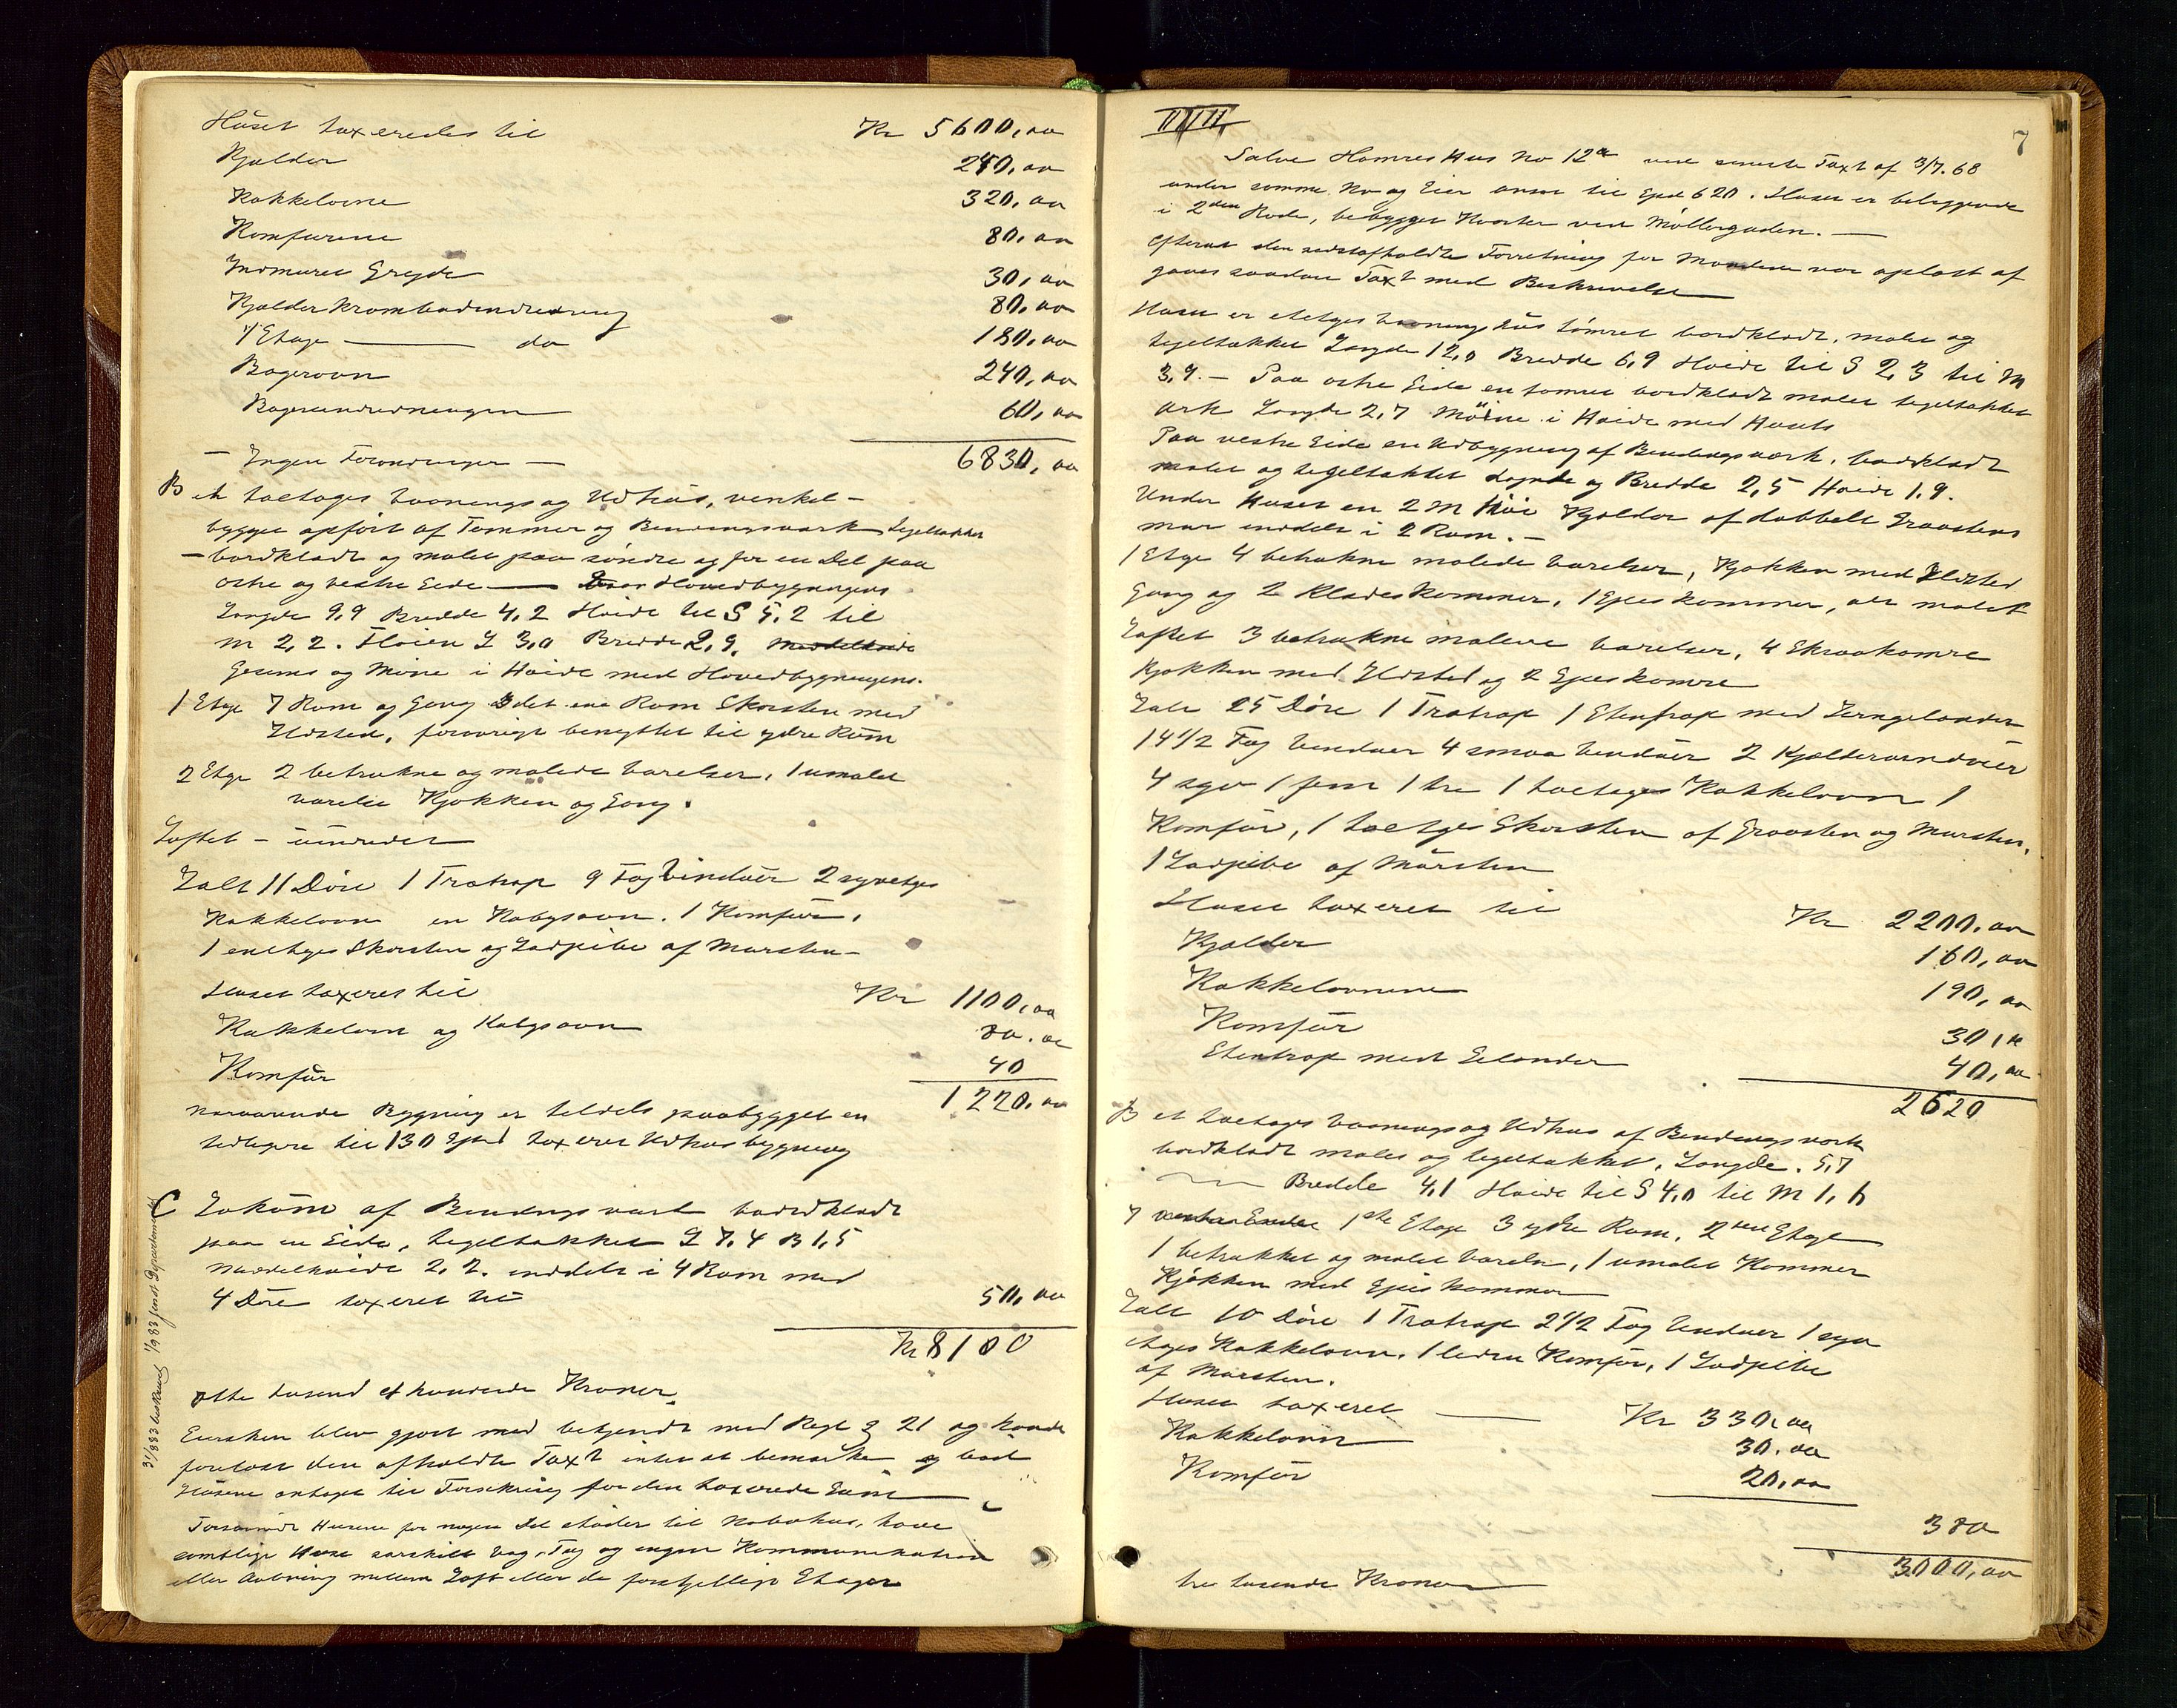 Huset taxeredes til Kr 5600,00
Kjælder 240,00
Kakkelovne 320,00
Komfurene 80,00
Indmuret Gryde 30,00
Kjælder Krambodindredning 80,00
1 Etage — do 180,00
Bagerovn 240,00
Bagerindredningen 60,00
— Ingen Forandringer — 6830,00
B et toetages Vaanings og Udhus, vinkel-
bygget opført af Tømmer og Bindingsværk tegeltækket
— bordklædt og malet paa søndre og for en Del paa
østre og vestre Side — Hovedbygningens
Længde 9,9 Bredde 4,2 Høide til S 5,2 til
M 2,2. Fløien L 3,0 Bredde 2,9.
Gesims og Møne i Høide med Hovedbygningens.
1 Etage 7 Rum og Gang I det ene Rum Skorsten med
Ildsted, forøvrigt benyttet til ydre Rum
2 Etge 2 betrukne og malede Værelser, 1 umalet
Værelse Kjøkken og Gang.
Loftet — uindredet
Ialt 11 Døre 1 Trætrap 9 Fag Vinduer 2 syvetges
Kakkelovn en Kabysovn. 1 Komfur.
1 enetages Skorsten og Ladpibe af Mursten —
Huset taxeret til Kr 1100,00
Kakkelovn og Kabysovn 80.00
Komfur 40
1220,00
nærværende Bygning er tildels paabygget en
tidligere til 130 Spd taxeret Udhusbygning
C Lokum af Bindingsværk bordklædt
paa en Side, tegeltækket L 7.4 B 1,5
Middelhøide 2.2. inddelt i 4 Rum med
4 Døre taxeret til 50,00
Kr 8100
otte tusend et hundrede Kroner
Eiersken blev gjort med bekjendt med Regl § 21 og havde
foreløst den afholdte Taxt intet at bemærke og bad
Husene antaget til Forsikring for den taxerede Sum —
Forsaavidt Husene for nogen Del støder til Nabohus, have
samtlige Huse særskilt Væg, Tag og ingen Kommunikation
eller Aabning mellem Loft eller de forskjellige Etager
31/1 883 beskrevet 1/9 83 sendt Departementet
7
Salve Hamres Hus No 12a ved seneste Taxt af 3/7. 68
under samme No og Eier ansat til Spd 620. Huset er beliggende
i 2den Rode, bebygget Kvarter ved Møllergaden. —
Efterat den sidstafholdte Forretning for Mændene var oplæst af
gaves saadan Taxt med Beskrivelse
Huset er etetges Vaaningshus tømret bordklædt, malet og
tegeltækket Længde 12,0 Bredde 6,9 Høide til S 2,3 til M
3,9. — Paa østre Side en tømret bordklædt malet tegeltækket
Ark Længde 2,7 Møine i Høide med Husets
Paa vestre Side en Udbygning af Bindingsværk, bordklædt
malet og tegeltækket Længde og Bredde 2,5 Høide 1.9.
Under Huset en 2 M høi Kjælder af dobbelt Graastens
mur inddelt i 2 Rum. —
1 Etge 4 betrukne malede Værelser, Kjøkken med Ildsted
Gang og 2 Klædeskammer, 1 Spiskammer, alt malet
Loftet 3 betrukne malede Værelser, 4 Skraakamre
Kjøkken med Ildsted og 2 Spiskamre
Ialt 25 Døre 1 Trætrap 1 Stentrap med Jerngelænder
14 1/2 Fag Vinduer 4 smaa Vinduer 2 Kjældervinduer
4 syv 1 fem 1 tre 1 toetages Kakkelovn 1
Komfur, 1 toetges Skorsten af Graasten og Mursten,
1 Ladpibe af Mursten
Huset taxeret til Kr 2200,00
Kjælder 160,00
Kakkelovnene 190,00
Komfur 30,00
Stentrap med Gelænder 40,00
2620
B et toetages Vaanings og Udhus af Bindingsværk
bordklædt malet og tegeltækket, Længde. 5,7
Bredde 4,1 Høide til S 4,0 til M 1,6
I 1ste Etage 3 ydre Rum. 2den Etage
1 betrukket og malet Værelse, 1 umalet Kammer
Kjøkken med Spiskammer
Ialt 10 Døre 1 Trætrap 2 1/2 Fag Vinduer 1 syv
etages Kakkelovn, 1 lidet Komfur, 1 Ladpibe
af Mursten.
Huset taxeret — Kr 330,00
Kakkelovn 30.00
Komfur 20,00
380
3000,00
tre tusende Kroner